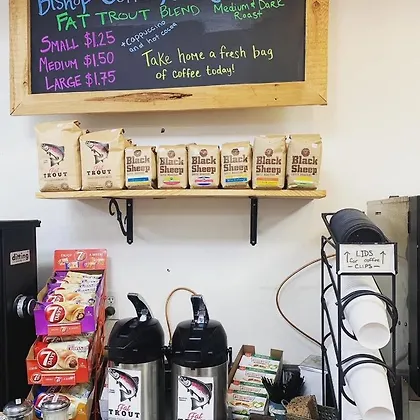 Bishop
FAT TROUT BLEND
Medium & Dark
Roast
SMALL $1.25
MEDIUM $1.50
LARGE $1.75
+Cappuccino
and hot cocoa
Take home a fresh bag
of coffee today!
TROUT
TROUT
Black
Sheep
Black
Sheep
Black
Sheep
Black
Sheep
Black
Sheep
Black
Sheep
ditting
LIDS
for coffee
CUPS
7DAYS
7DAYS
7DAYS
Fat
TROUT
Fat